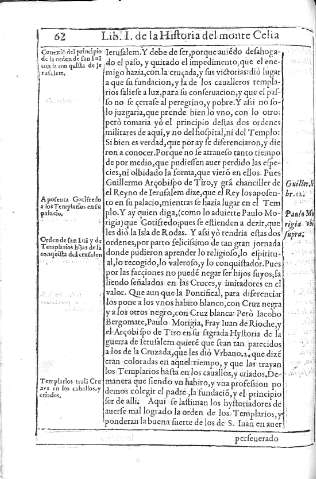 62 Lib. I. de la Historia del monte Celia
Conexió del principio
de la orden de san Iuã
con la cõquista de Ie
rusalem.
Ierusalem. Y debe de ser, porque auiédo desahoga-
do el paso, y quitado el impedimento, que el ene-
migo hazia, con la cruçada, y sus victorias: dió lugar
a que su fundacion, y la de los caualleros templa-
rios saliese a luz, para su conseruacion, y que el pas-
so no se cerrase al peregrino, y pobre. Y asi no so-
lo juzgaria, que prende bien lo vno, con lo otro:
però tomaria yó el principio destas dos ordenes
militares de aqui, y no del hospital, ni del Templo:
Si bien es verdad, que por ay se diferenciaron, y die
ron a conocer. Porque no se atraueso tanto tiempo
de por medio, que pudiesen auer perdido las espe-
cies, ni olbidado la forma, que vieró en ellos Pues
Guillermo Arçobispo de Tiro, y grã chanciller de
el Reyno de Ierusalem dize, que el Rey los aposen-
to en su palacio, mientras se hazia lugar en el Tem
plo. Y ay quien diga, (como lo aduierte Paulo Mo-
rigia) que Gotifredo; pues se estienden a dezir, que
les dió la Isla de Rodas. Y asi yó tendria estas dos
ordenes, por parto felicisimo de tan gran jornada
donde pudieron aprender lo religioso, lo espiritu-
al, lo recogido, lo valeroso, y lo conquistador. Pues
por las facciones no puede negar ser hijos suyos, sa
liendo señalados en las Cruces, y imitadores en el
valor. Que aun que la Pontifical, para diferenciar
los pone a los vnos habito blanco, con Cruz negra
y a los otros negro, con Cruz blanca: Peró Iacobo
Bergomate, Paulo Morigia, Fray Iuan de Rioche, y
el Arçobispo de Tiro en su sagrada Hystoria de la
guerra de Ierusalem quieré que sean tan parecidos
a los de la Cruzada, que les dió Vrbano, 2, que dizé
eran coloradas en aquel tiempo, y que las trayan
los Templarios hasta en los cauallos, y criados, De-
maneta que siendo vn habito, y vna profesion po
demos colegir el padre, la fundació, y el principio
ser de alla. Aqui se lastiman los hystoriadores de
auerse mal logrado la orden de los Templarios, y
ponderan la buena suerte de los de S. Iuan en auer
perseuerado
Aposenta Gotifredo
a los Templarios en su
palacio.
Orden de san Iuã y de
Templarios hijas de la
conquista de Ierusalem
Templarios traiã Cru
zes en los caballos, y
criados.
Guiller. li
br. 12.
Paulo Mo
rigia vbi
supra.